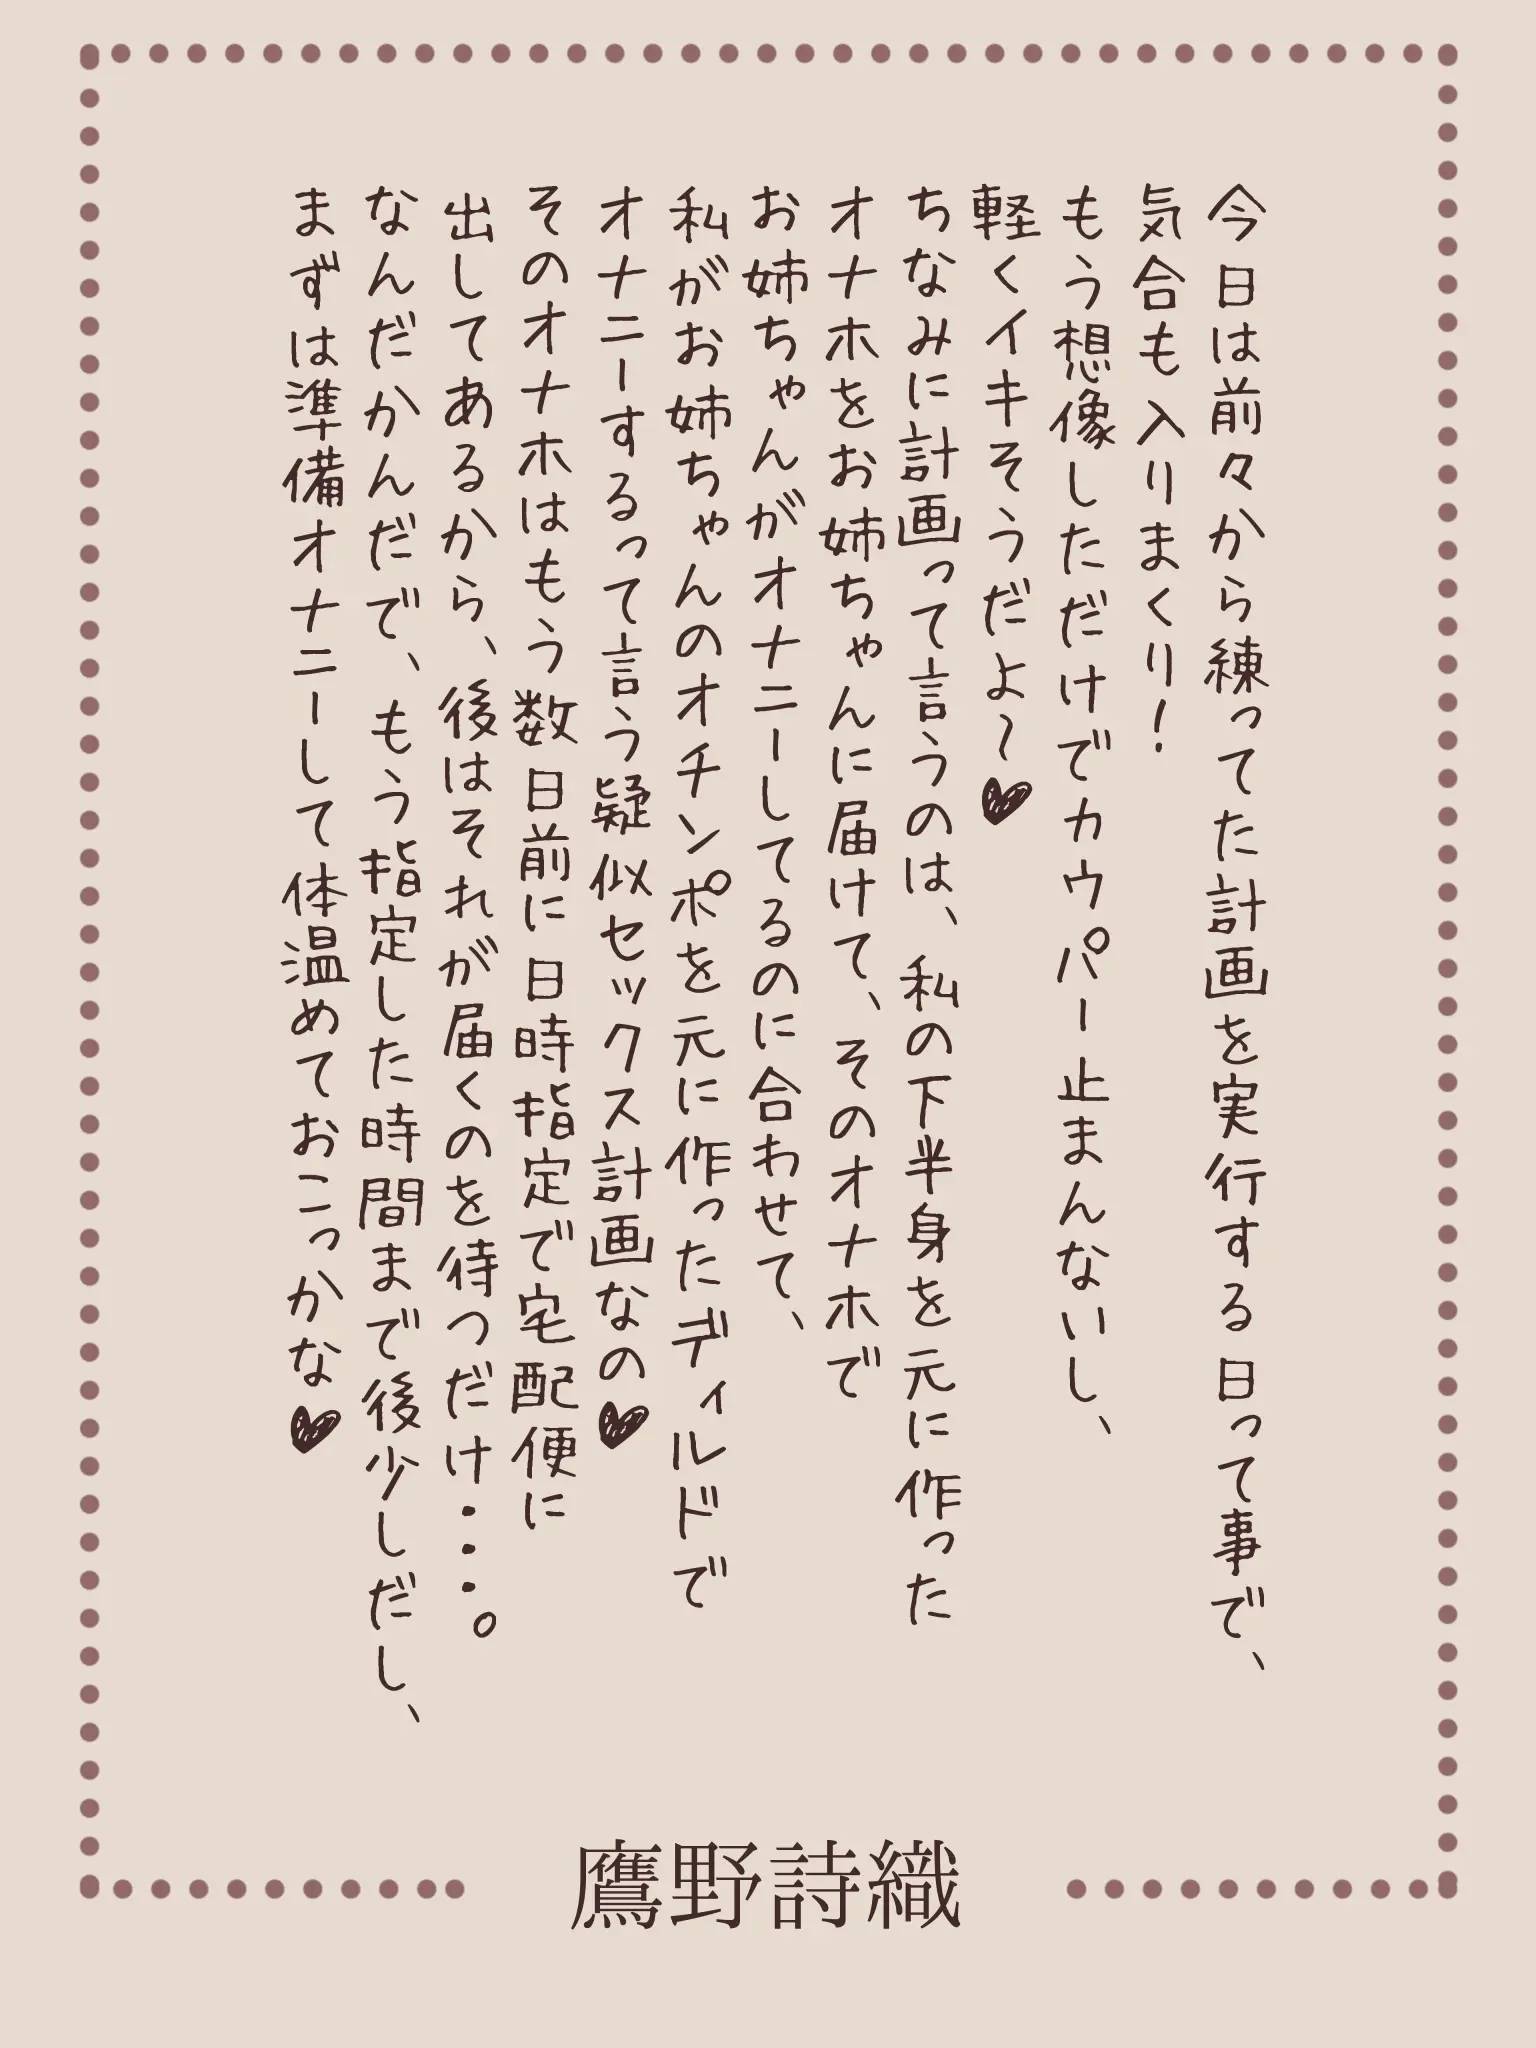 今日は前々から練ってた計画を実行する日って事で、
気合も入りまくり！
もう想像しただけでカウパー止まんないし、
軽くイキそうだよ～♥
ちなみに計画って言うのは、私の下半身を元に作った
オナホをお姉ちゃんに届けて、そのオナホで
お姉ちゃんがオナニーしてるのに合わせて、
私がお姉ちゃんのオチンポを元に作ったディルドで
オナニーするって言う疑似セックス計画なの♥
そのオナホはもう数日前に日時指定で宅配便に
出してあるから、後はそれが届くのを待つだけ・・・。
なんだかんだで、もう指定した時間まで後少しだし、
まずは準備オナニーして体温めておこっかな♥
鷹野詩織